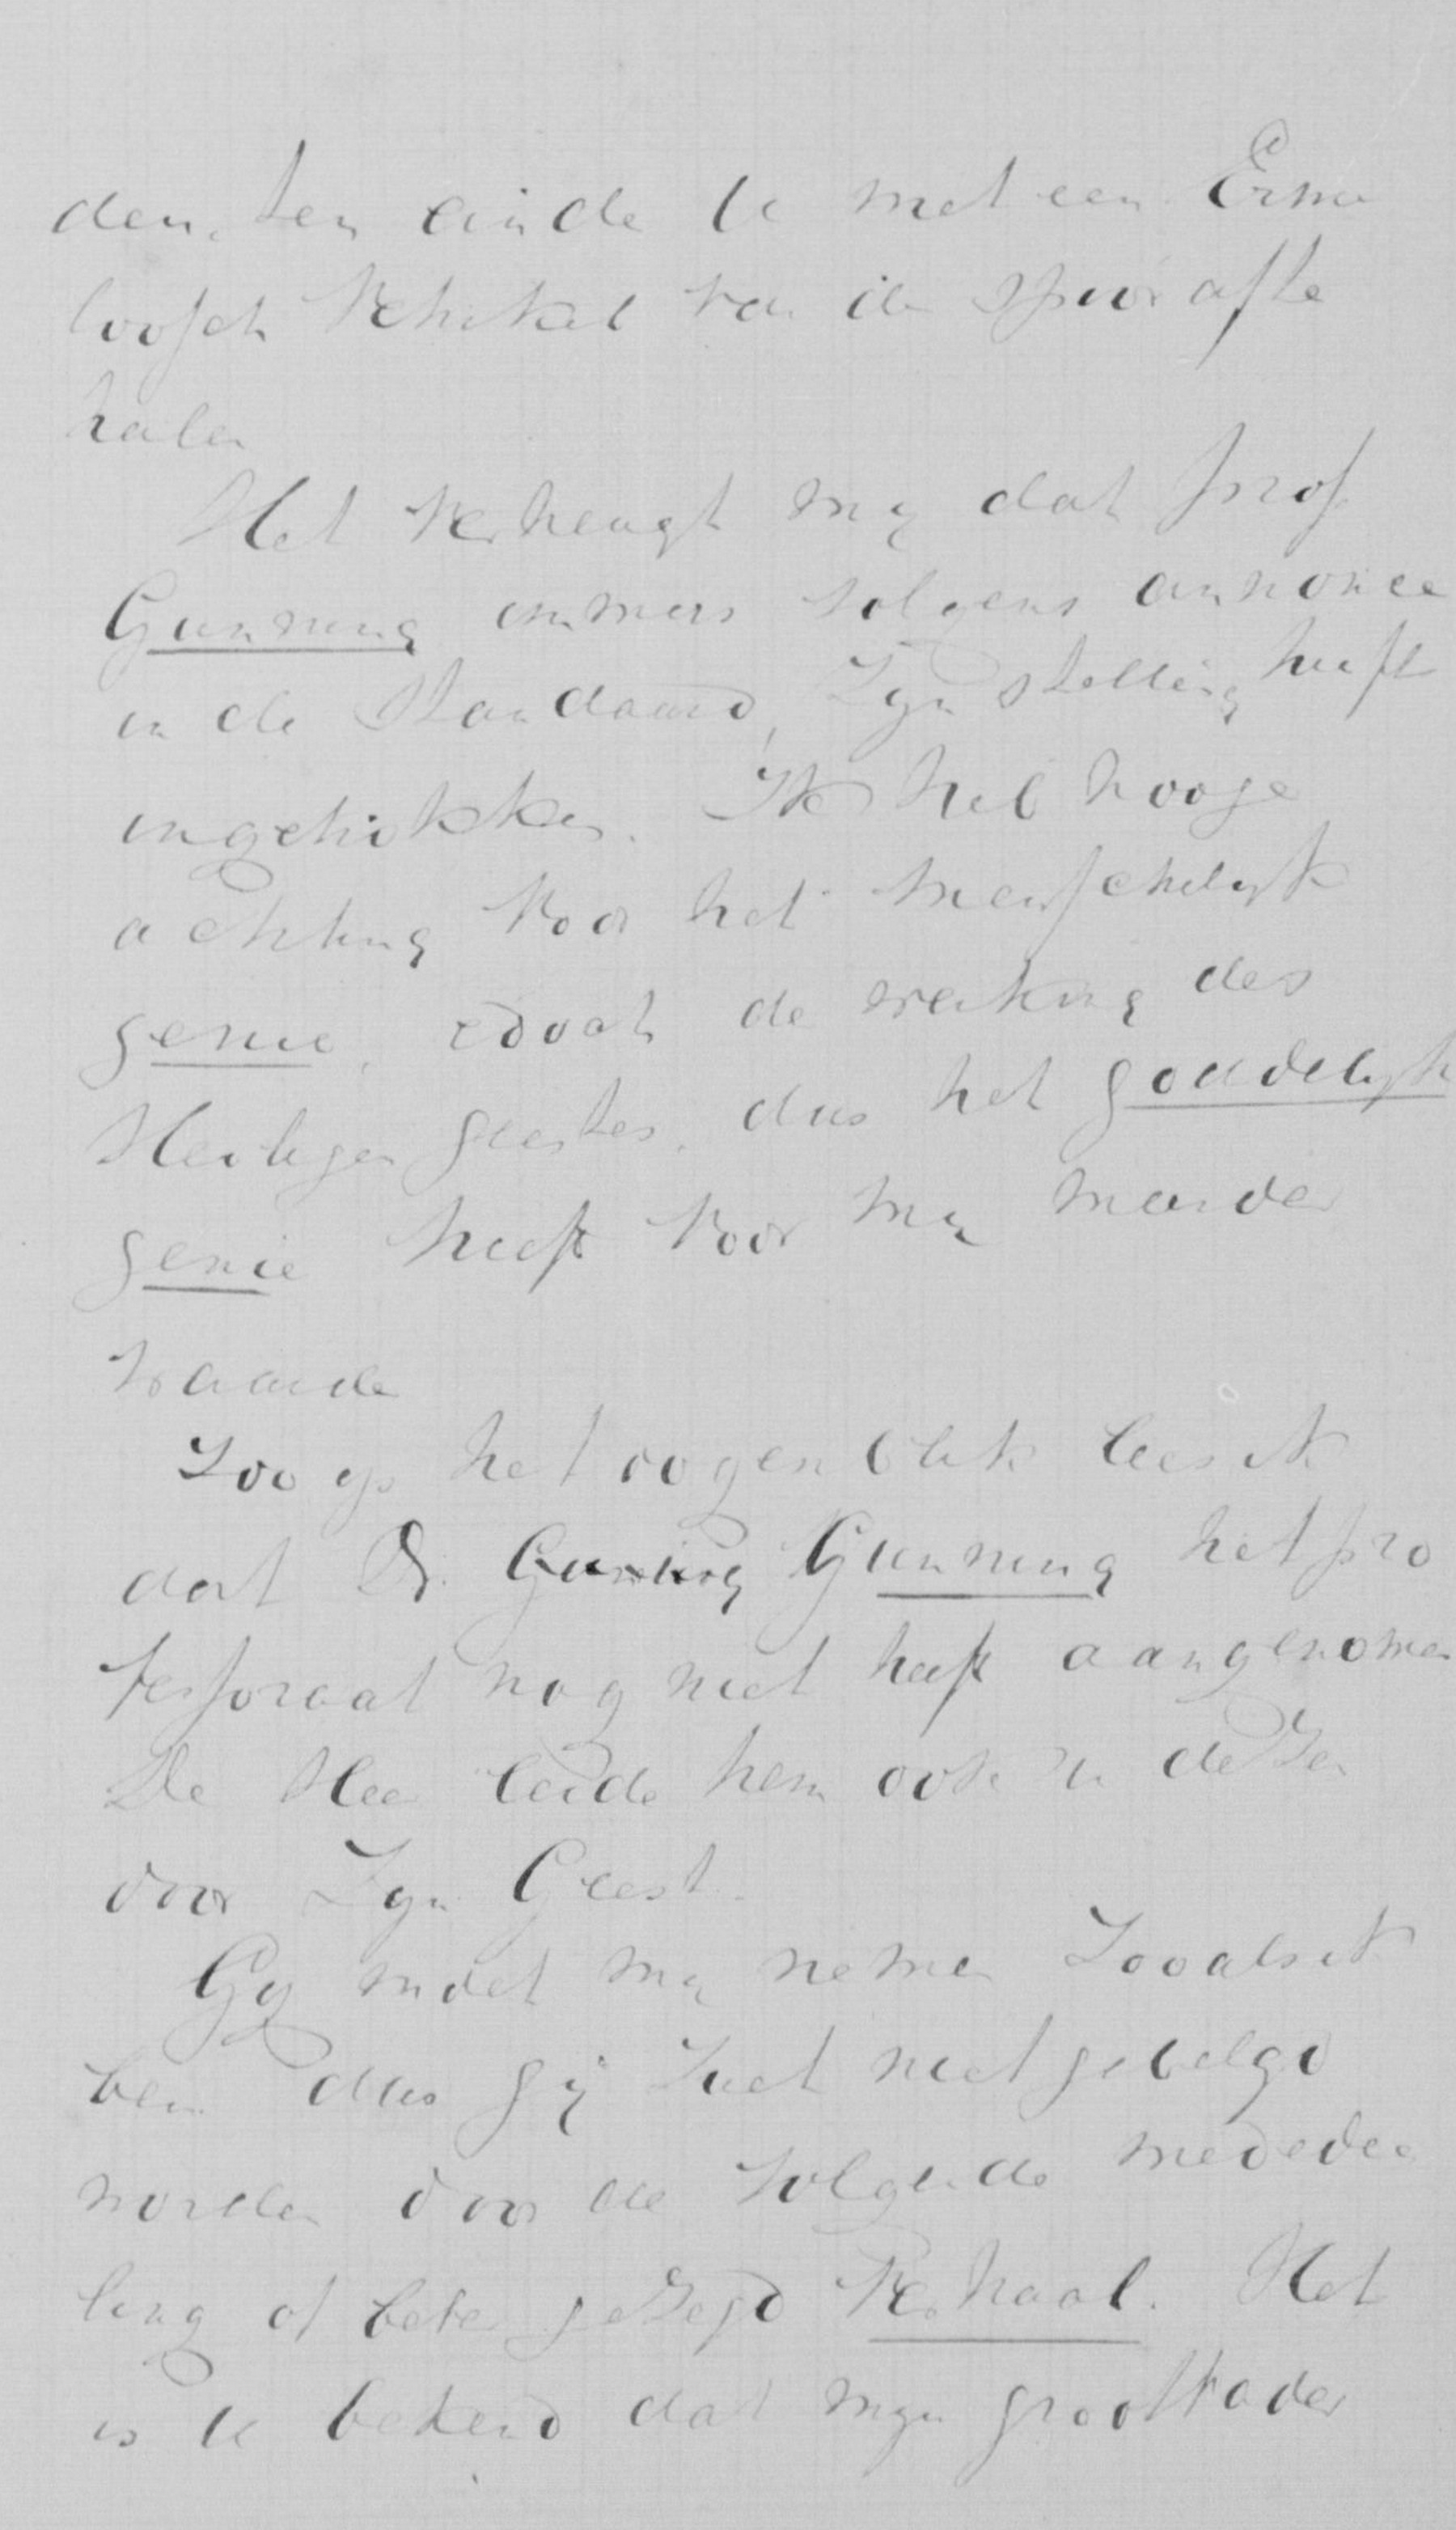 den, ten einde U met een Erme
loosch vehikel van de spoor af te
halen
Het verheugt mij dat prof
Gunning immers volgens annonce
in de Standaard, Zijn stelling heeft
ingetrokken. Ik heb hooge
achting voor het menschelijk
genie, edoch de werking des
Heiligen Geestes, dus het goddelijk
genie heeft voor mij meerder
waarde
Zoo op het oogenblik lees ik
dat Dr. Gunning Gunning het pro
fessoraat nog niet heeft aangenomen
De Heer leide hem ook in dezen
door Zijn Geest.
Gij moet mij nemen zooals ik
ben dus gij zult niet gebelgd
worden door de volgende mededee
ling of beter gezegd verhaal. Het
is U bekend dat mijn grootvader